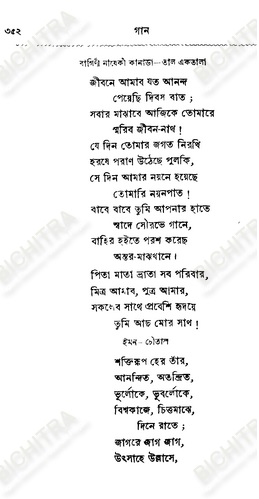 ৩৫২
গান
রাগিণী নায়েকী কানাড়া—তাল একতালা
জীবনে আমার যত আনন্দ
পেয়েছি দিবস রাত ;
সবার মাঝারে আজিকে তোমারে
স্মরিব জীবন-নাথ !
যে দিন তোমার জগত নিরখি
হরষে পরাণ উঠেছে পুলকি,
সে দিন আমার নয়নে হয়েছে
তোমারি নয়নপাত !
বারে বারে তুমি আপনার হাতে
স্বাদে সৌরভে গানে,
বাহির হইতে পরশ করেছ
অন্তর-মাঝখানে ।
পিতা মাতা ভ্রাতা সব পরিবার,
মিত্র আমার, পুত্র আমার,
সকলের সাথে প্রবেশি হৃদয়ে
তুমি আছ মোর সাথ !
ইমন—চৌতাল
শক্তিরূপ হের তাঁর,
আনন্দিত, অতন্দ্রিত,
ভূর্লোকে, ভূবর্লোকে,
বিশ্বকাজে, চিত্তমাঝে,
দিনে রাতে ;
জাগরে জাগ জাগ,
উৎসাহে উল্লাসে,
BICHITRA